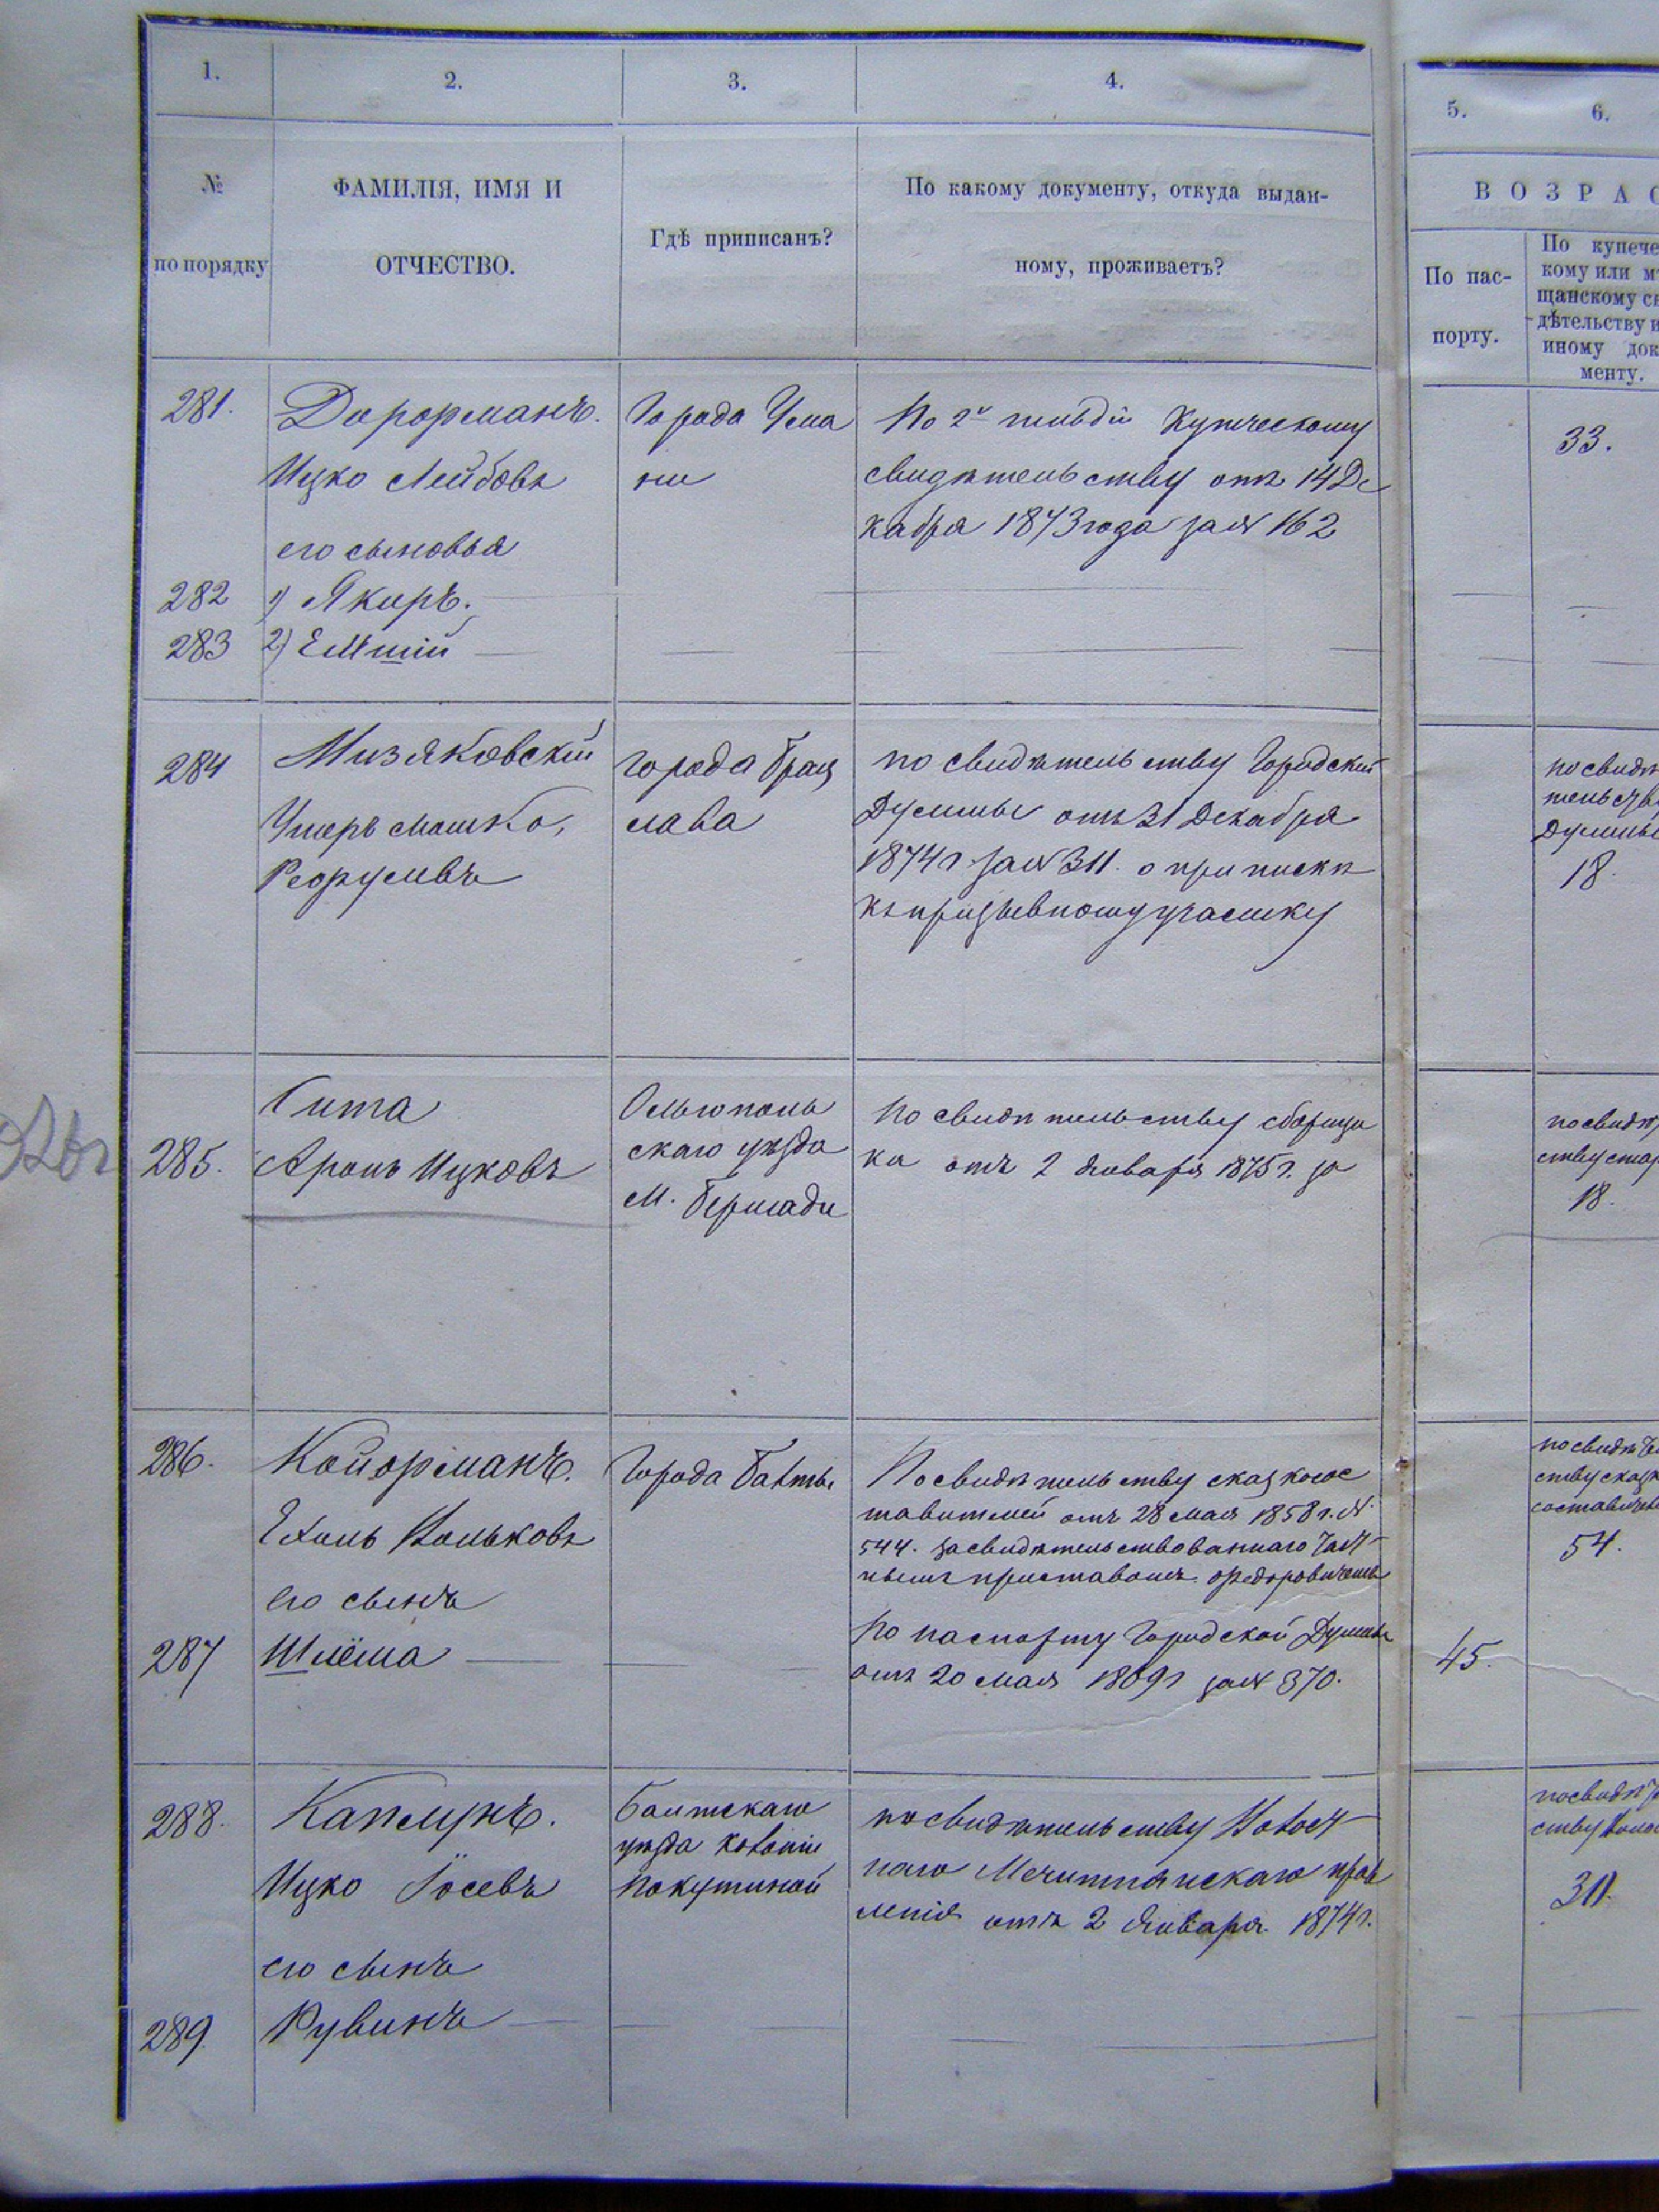 1.
2.
3.
4.
5.
6.
№
по порядку
ФАМИЛІЯ, ИМЯ И
ОТЧЕСТВО.
Гдѣ приписанъ?
По какому документу, откуда выдан-
ному, проживаетъ?
ВОЗРАС
По пас-
порту.
По купече
кому или мѣ
щанскому св
дѣтельству и
иному док
менту.
281.
Дорфманъ.
Ицко Лейбовъ
его сыновья
Города Ума
ни
По 2й гильдіи Купческому
свидѣтельству отъ 14 Де
кабря 1873 года за № 162
33.
282
1) Якиръ.
283
2)
284
Мизяковскій
Ушеръ Мошко,
Рефулевъ
города Брац
лава
по свидѣтельству Городской
Думмы отъ 31 Декабря
1874 г. за № 311. о припискѣ
къ призывному участку
по свидѣ
тельству
Думмы
18.
285.
Гита
Аронъ Ицковъ
Ольгополь
скаго уѣзда
М. Бершади
По свидѣтельству сборщи
ка отъ 2 Января 1875 г. за
по свидѣ
ству
18.
286.
Койфманъ.
Ехиль Нольковъ
его сынъ
Города Балты
По свидѣтельству сказкосос
тавителей отъ 28 мая 1858 г. №
544. засвидѣтельствованнаго Част
нымъ приставомъ Федоровичемъ
по свидѣте
ству сказк
составите
54.
287
Шлёма
По паспорту Городской Думмы
отъ 20 мая 1869 г за № 370.
45.
288.
Каплунъ.
Ицко Іосевъ
его сынъ
Балтскаго
уѣзда колоніи
Покутиной
по свидѣтельству Волост
наго прав
ленія отъ 2 Января 1874 г.
по свидѣте
ству Воло
31.
289.
Рувинъ